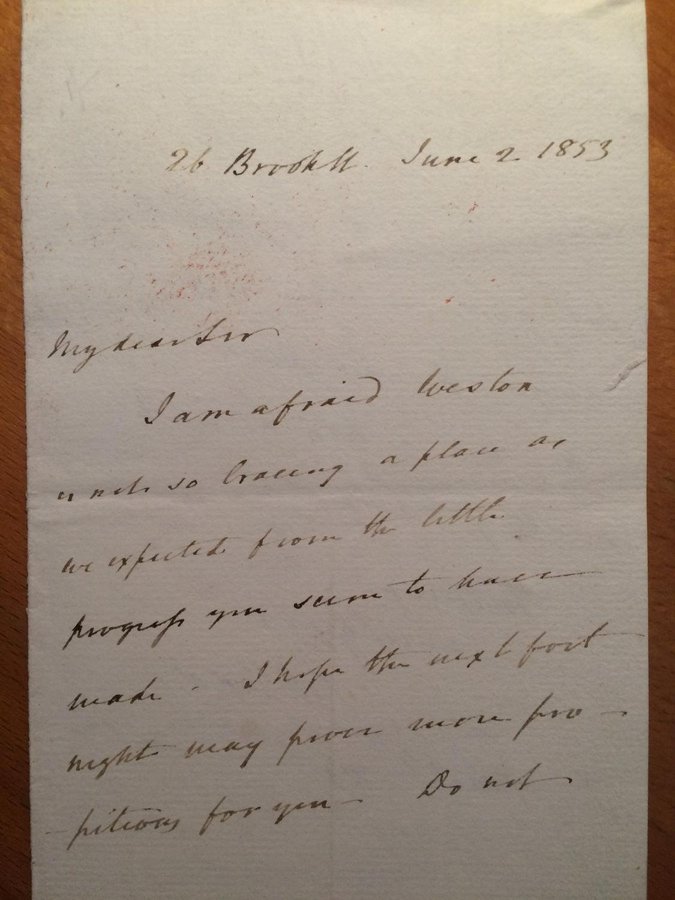 26 Brook St. June 2 1853
My dear Sir
I am afraid Weston
is not so bracing a place as
we expected from the little
progress you seem to have
made. I hope the next fort
night may prove more pro-
-pitious for you - Do not